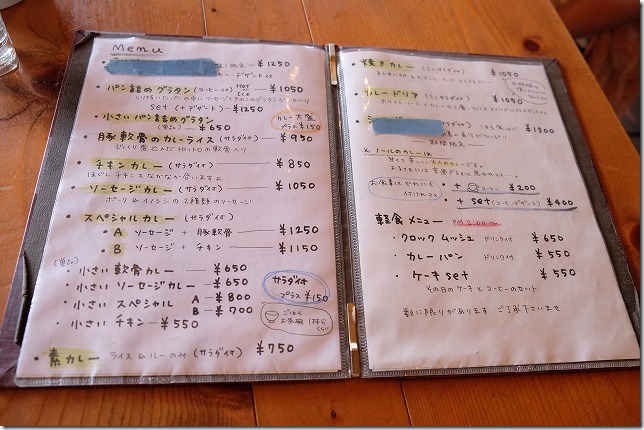 Menu
限定 ― ¥1250
コーヒー・デザート付
・パン詰めグラタン (コーヒー付) Hot Ice ― ¥1050
くりぬいたパンの中に
Set (+デザート) ― ¥1250
・小さいパン詰めグラタン
(単品) ― ¥650
カレー大盛
プラス ¥150
・豚軟骨のカレーライス (サラダ付) ¥950
じっくり煮こんだトロトロの軟骨入り
・チキンカレー (サラダイ付) ― ¥850
ほぐしチキンとなかなか合いますよ
・ソーセージカレー (サラダイ付) ― ¥1050
ポーク&イノシシの2種類のソーセージ
・スペシャルカレー (サラダイ付)
A ソーセージ + 豚軟骨 ― ¥1250
B ソーセージ + チキン ― ¥1150
(単品)
・小さい 軟骨カレー ― ¥650
・小さい ソーセージ ― ¥650
・小さい スペシャル A ― ¥800
B ― ¥700
・小さい チキン ― ¥550
サラダイ付
プラス ¥150
ごはん
お茶碗 1杯分
くらい
・素カレー ライス&ルーのみ (サラダイ付) ¥750
・焼きカレー (ミニサラダイ付) ― ¥1050
・カレードリア (ミニサラダイ付) ― ¥1050
¥1300
期間限定
甘くて辛い大人のカレーです。
お食事にどれにも
付けれマス
+ コーヒー ¥200
+ set (コーヒー・デザート) ¥400
軽食メニュー PM 2:00〜
・クロックムッシュ ドリンク付 ¥650
・カレーパン ドリンク付 ― ¥550
・ケーキset ― ¥550
その日のケーキとコーヒーのセット
数に限りがあります ご了承下さいませ